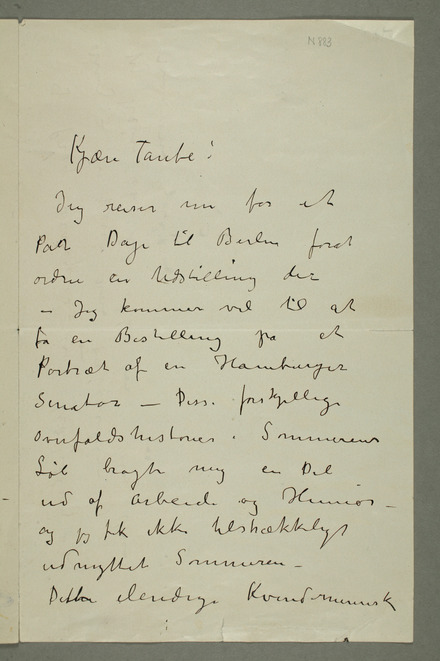 N 883
Kjære Tante!
Jeg reiser nu for et
Par Dage til Berlin forat
ordne en Udstilling der
– Jeg kommer vel til at
få en Bestilling på et
Portræt af en Hamburger
Senator – Disse forskjellige
Overfaldshistorier i Sommerens
Løb bragte mig en Del
ud af Arbeide og Humør –
og jeg fik ikke tilstrækkeligt
udnyttet Sommeren –
Dette elendige Kvindemennesk